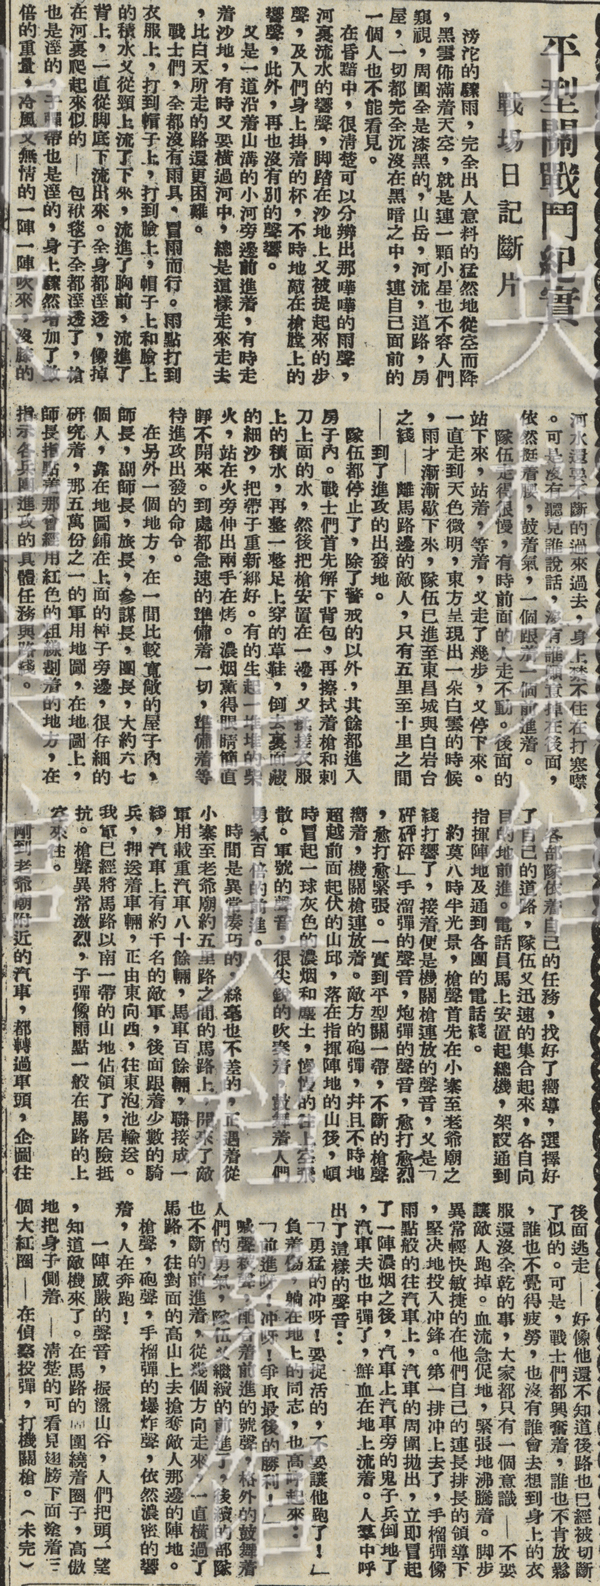 平型關戰鬥紀實
戰場日記斷片
滂沱的驟雨，完全出人意料的猛然地從空而降
，黑雲佈滿着天空，就是連一顆小星也不容人們
窺視，周圍全是漆黑的，山岳，河流，道路，房
屋，一切都完全沉沒在黑暗之中，連自己面前的
一個人也不能看見。
在昏黯中，很清楚可以分辨出那嘩嘩的雨聲，
河裏流水的響聲，脚踏在沙地上又被提起來的步
聲，及人們身上掛着的杯，不時地敲在槍膛上的
響聲，此外，再也沒有別的聲響。
又是一道沿着山溝的小河旁邊前進着，有時走
着沙地，有時又要橫過河中，總是這樣走來走去
，比白天所走的路還更困難。
戰士們，全都沒有雨具，冒雨而行。雨點打到
衣服上，打到帽子上，打到臉上，帽子上和臉上
的積水又從頸上流了下來，流進了胸前，流進了
背上，一直從脚底下流出來。全身都溼透，像掉
在河裏爬起來似的——包袱毯子全都溼透了，槍
也是溼的，子彈帶也是溼的，身上驟然增加了數
倍的重量，冷風又無情的一陣一陣吹來，沒膝的
河水還要不斷的過來過去，身上禁不住在打寒噤
。可是沒有聽見誰說話，沒有誰願意掉在後面，
依然挺着腰，鼓着氣，一個跟着一個前進着。
隊伍走得很慢，有時前面的人走不動。後面的
站下來，站着，等着，又走了幾步，又停下來。
一直走到天色微明，東方呈現出一朵白雲的時候
，雨才漸漸歇下來，隊伍已進至東昌城與白岩台
之綫——離馬路邊的敵人，只有五里至十里之間
——到了進攻的出發地。
隊伍都停止了，除了警戒的以外，其餘都進入
房子內。戰士們首先解下背包，再擦拭着槍和刺
刀上面的水，然後把槍安置在一邊，又擰擰衣服
上的積水，再整一整足上穿的草鞋，倒去裏面藏
的細沙，把帶子重新綁好。有的生起一堆堆的柴
火，站在火旁伸出兩手在烤。濃烟薰得眼睛簡直
睜不開來。到處都急速的準備着一切，準備着等
待進攻出發的命令。
在另外一個地方，在一間比較寬敞的屋子內，
師長，副師長，旅長，參謀長，團長，大約六七
個人，靠在地圖鋪在上面的棹子旁邊，很仔細的
研究着，那五萬份之一的軍用地圖，在地圖上，
師長指點着那曾經用紅色的粗綫劃着的地方，在
指示各兵團進攻的具體任務與路綫。
各部隊依着自己的任務，找好了嚮導，選擇好
了自己的道路，隊伍又迅速的集合起來，各自向
目的地前進。電話員馬上安置起總機，架設通到
指揮陣地及通到各團的電話綫。
約莫八時半光景，槍聲首先在小寨至老爺廟之
綫打響了，接着便是機關槍連放的聲音，又是「
砰砰砰」手溜彈的聲音，炮彈的聲音，愈打愈烈
，愈打愈緊張。一實到平型關一帶，不斷的槍聲
嚮着，機關槍連放着。敵方的砲彈，幷且不時地
超越前面起伏的山邱，落在指揮陣地的山後，頓
時冒起一球灰色的濃烟和塵土，慢慢的往上空飛
散。軍號的聲音，很尖銳的吹奏着，鼓舞着人們
勇氣百倍的前進。
時間是異常湊巧的，絲毫也不差的，正遇着從
小寨至老爺廟約五里路之間的馬路上，開來了敵
軍用載重汽車八十餘輛，馬車百餘輛，聯接成一
綫，汽車上有約千名的敵軍，後面跟着少數的騎
兵，押送着車輛，正由東向西，往東泡池輸送。
我軍已經將馬路以南一帶的山地佔領了，居險抵
抗。槍聲異常激烈，子彈像雨點一般在馬路的上
空來往。
剛到老爺廟附近的汽車，都轉過車頭，企圖往
後面逃走——好像他還不知道後路也已經被切斷
了似的。可是，戰士們都興奮着，誰也不肯放鬆
，誰也不覺得疲勞，也沒有誰會去想到身上的衣
服還沒全乾的事，大家都只有一個意識——不要
讓敵人跑掉。血流急促地，緊張地沸騰着。脚步
異常輕快敏捷的在他們自己的連長排長的領導下
，堅决地投入冲鋒。第一排冲上去了，手榴彈像
雨點般的往汽車上，汽車的周圍拋出，立即冒起
了一陣濃烟之後，汽車上汽車旁的鬼子兵倒地了
，汽車夫也中彈了，鮮血在地上流着。人羣中呼
出了這樣的聲音：
「勇猛的冲呀！要捉活的，不要讓他跑了！」
負着傷，躺在地上的同志，也高呼起來：
「前進呀！冲呀！爭取最後的勝利！」
喊聲和槍聲，配合着前進的號聲，格外的鼓舞着
人們的勇氣，隊伍又繼續的前進了，後續的部隊
也不斷的前進着，從幾個方向走來，一直橫過了
馬路，往對面的高山上去搶奪敵人那邊的陣地。
槍聲，砲聲，手榴彈的爆炸聲，依然濃密的響
着，人在奔跑！
一陣威嚴的聲音，振盪山谷，人們把頭一望
，知道敵機來了。在馬路的周圍繞着圈子，高傲
地把身子側着——清楚的可看見翅膀下面塗着二
個大紅圈——在偵察投彈，打機關槍。（未完）